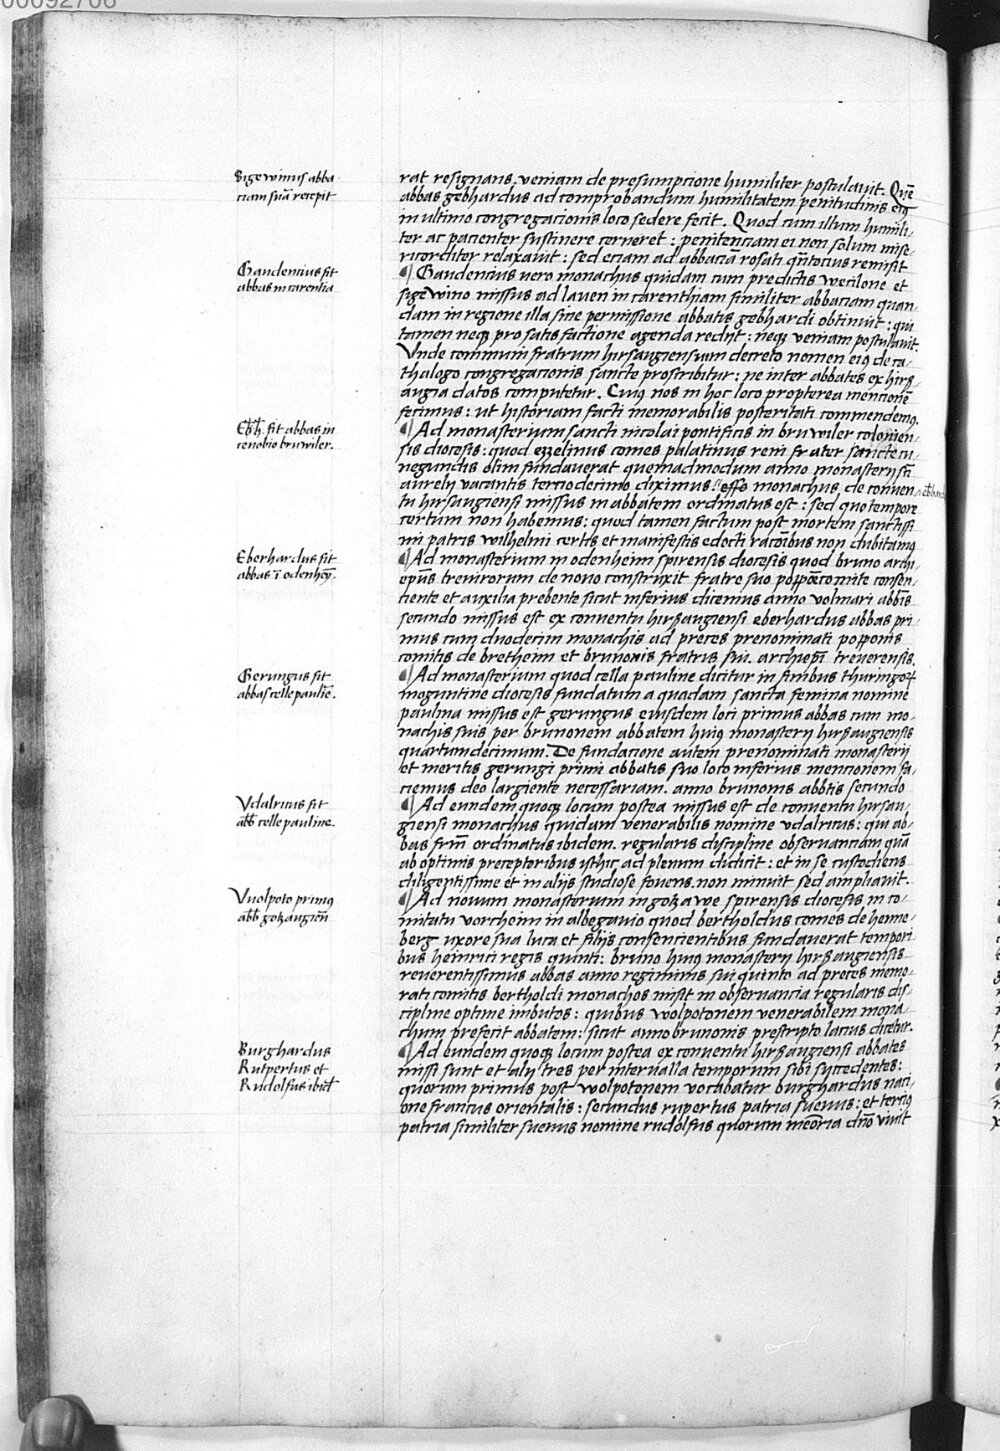 00092706
Sigewinus abba-
ciam suā recepit
rat resignans. veniam de presumpcione humiliter postulauit. Quē
abbas gebhardus ad comprobandum humilitatem penitudinis eiꝰ
in ultimo congregacionis loco sedere fecit. Quod cum illum humili-
ter ac pacienter sustinere cerneret: penitenciam ei non solum mise-
ricorditer relaxauit: sed eciam ad abbaciā rosati qn̄tocius remisit
Gaudencius fit
abbas in carentia
¶ Gaudencius vero monachus quidam cum predictis wecilone et
sigewino missus ad lauen in carenthiam similiter abbaciam quan-
dam in regione illa sine permissione abbatis gebhardi obtinuit: qui
tamen neqꝫ pro satisfactione agenda redijt: neqꝫ veniam postulauit.
Vnde communi fratrum hirsaugiensium decreto nomen eiꝰ de ca-
thalogo congregacionis sancte proscribitur: ne inter abbates ex hirs-
augia datos computetur. Cuiꝰ nos in hoc loco propterea mencionē
fecimus: ut historiam facti memorabilis posteritati commendemꝰ.
Ebh. fit abbas in
cenobio bruwiler.
¶ Ad monasterium sancti nicolai pontificis in bruwiler colonien-
sis diocesis: quod ezzelinus comes palatinus reni frater sancte cu-
negundis olim fundauerat quemadmodum anno monasterij sti
aurelij vacantis terciodecimo diximus: effo monachus de conuen-
ebhard
tu hirsaugiensi missus in abbatem ordinatus est: sed quo tempore
certum non habemus: quod tamen factum post mortem sanctissi-
mi patris wilhelmi certis et manifestis edocti racōibus non dubitamꝰ
Eberhardus fit
abbas ī odenheȳ.
¶ Ad monasterium in odenheim spirensis diocesis quod bruno archi-
epūs trevirorum de nouo construxit fratre suo poppōe comite consen-
tiente et auxilia prebente sicut inferius dicemus anno volmari abbīs
secundo missus est ex conuentu hirsaugiensi eberhardus abbas pri-
mus cum duodecim monachis ad preces prenominati popponis
comitis de bretheim et brunonis fratris sui. archiepī treuerensis.
Gerungus fit
abbas celle pauliē.
¶ Ad monasterium quod cella pauline dicitur in finibus thuringoꝝ
moguntine diocesis fundatum a quadam sancta femina nomine
paulina missus est gerungus eiusdem loci primus abbas cum mo-
nachis suis per brunonem abbatem huiꝰ monasterij hirsaugiensis
quartumdecimum. De fundacione autem prenominati monasterij
et meritis gerungi primi abbatis suo loco inferius mencionem fa-
ciemus deo largiente necessariam. anno brunonis abbtīs secundo
Vdalricus fit
abb̄ celle pauline.
¶ Ad eundem quoqꝫ locum postea missus est de conuentu hirsau-
giensi monachus quidam venerabilis nomine vdalricus: qui ab-
bas frm̄ ordinatus ibidem. regularis discipline obseruanciam quā
ab optimis preceptoribus isthic ad plenum didicit: et in se custodiens
diligentissime et in alijs studiose fouens. non minuit sed ampliauit.
Vuolpoto primꝰ
abb̄ gotzaugien̄
¶ Ad nouum monasterium in gotzawe spirensis diocesis in co-
mitatu vorcheim in albegauio quod bertholdus comes de henne-
berg uxore sua luca et filijs consencientibus fundauerat tempori-
bus heinrici regis quinti: bruno huiꝰ monasterij hirsaugiensis
reuerentissimus abbas anno regiminis sui quinto ad preces memo-
rati comitis bertholdi monachos misit in obseruancia regularis dis-
cipline optime imbutos: quibus wolpotonem venerabilem mona-
chum prefecit abbatem: sicut anno brunonis prescripto lacius dicetur.
Burghardus
Rutpertus et
Rudolfus ibid̄
¶ Ad eundem quoqꝫ locum postea ex conuentu hirsaugiensi abbates
missi sunt et alij tres per interualla temporum sibi succedentes:
quorum primus post wolpotonem vocabatur burghardus naci-
one francus orientalis: secundus rupertus patria sueuus: et tercius
patria similiter sueuus nomine rudolfus quorum memoria cum dn̄o viuit